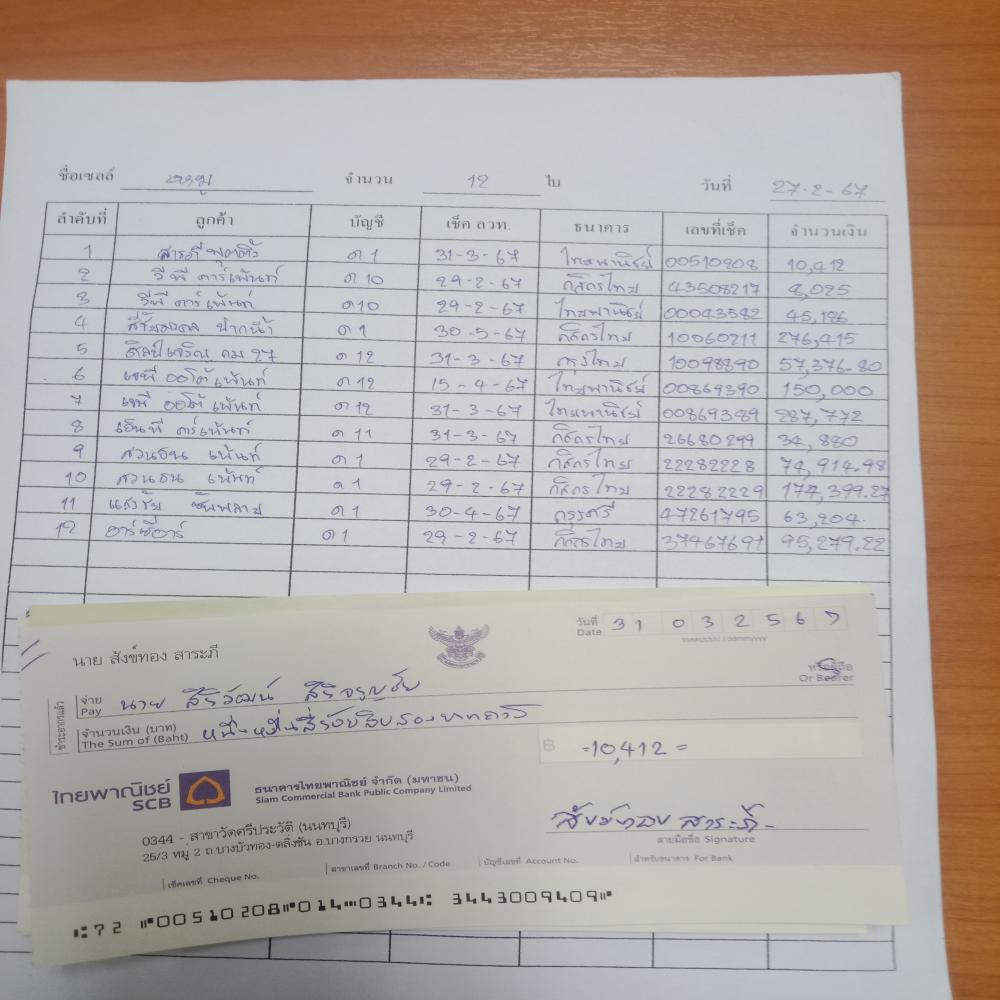 ชื่อเซลล์ หมู จำนวน 12 ใบ วันที่ 27-2-67
ลำดับที่ ลูกค้า บัญชี เช็ค ลวท. ธนาคาร เลขที่เช็ค จำนวนเงิน
1 สารภี ด1 31-3-67 ไทยพานิชย์ 00510208 10,412
2 วีพี คาร์เพ้นท์ ด10 29-2-67 กสิกรไทย 43508217 8,025
3 วีพี คาร์เพ้นท์ ด10 29-2-67 ไทยพานิชย์ 00043582 45,186
4 ปากน้ำ ด1 30-5-67 กสิกรไทย 10060211 276,415
5 ศิลป์เจริญ กม 27 ด12 31-3-67 กรุงไทย 10098890 57,376.80
6 เจพี ออโต้ เพ้นท์ ด12 15-4-67 ไทยพานิชย์ 00869390 150,000
7 เจพี ออโต้ เพ้นท์ ด12 31-3-67 ไทยพานิชย์ 00869389 287,772
8 เอ็นพี คาร์เพ้นท์ ด11 31-3-67 กสิกรไทย 26680299 34,880
9 สวนธน เพ้นท์ ด1 29-2-67 กสิกรไทย 22282228 74,914.98
10 สวนธน เพ้นท์ ด1 29-2-67 กสิกรไทย 22282229 177,399.27
11 แสงชัย ซัพพลาย ด1 30-4-67 กรุงศรี 47261795 63,204.
12 อาร์ซีอาร์ ด1 29-2-67 กสิกรไทย 37467691 95,279.22
วันที่ Date 3 1 0 3 2 5 6 7
นาย สังข์ทอง สาระภี
หรือผู้ถือ
Or Bearer
ชำระอากรแล้ว
จ่าย Pay นาย สิริวัฒน์ สิริจรูญชัย
จำนวนเงิน (บาท) The Sum of (Baht) หนึ่งหมื่นสี่ร้อยสิบสองบาทถ้วน
฿ =10,412=
ไทยพาณิชย์ SCB
ธนาคารไทยพาณิชย์ จำกัด (มหาชน)
Siam Commercial Bank Public Company Limited
0344 - สาขาวัดศรีประวัติ (นนทบุรี)
25/3 หมู่ 2 ถ.บางบัวทอง-ตลิ่งชัน อ.บางกรวย นนทบุรี
สังข์ทอง สาระภี
ลายมือชื่อ Signature
เช็คเลขที่ Cheque No. สาขาเลขที่ Branch No. / Code บัญชีเลขที่ Account No. สำหรับธนาคาร For Bank
⑆72 ⑈00510208⑈014⑉0344⑆ 3443009409⑈